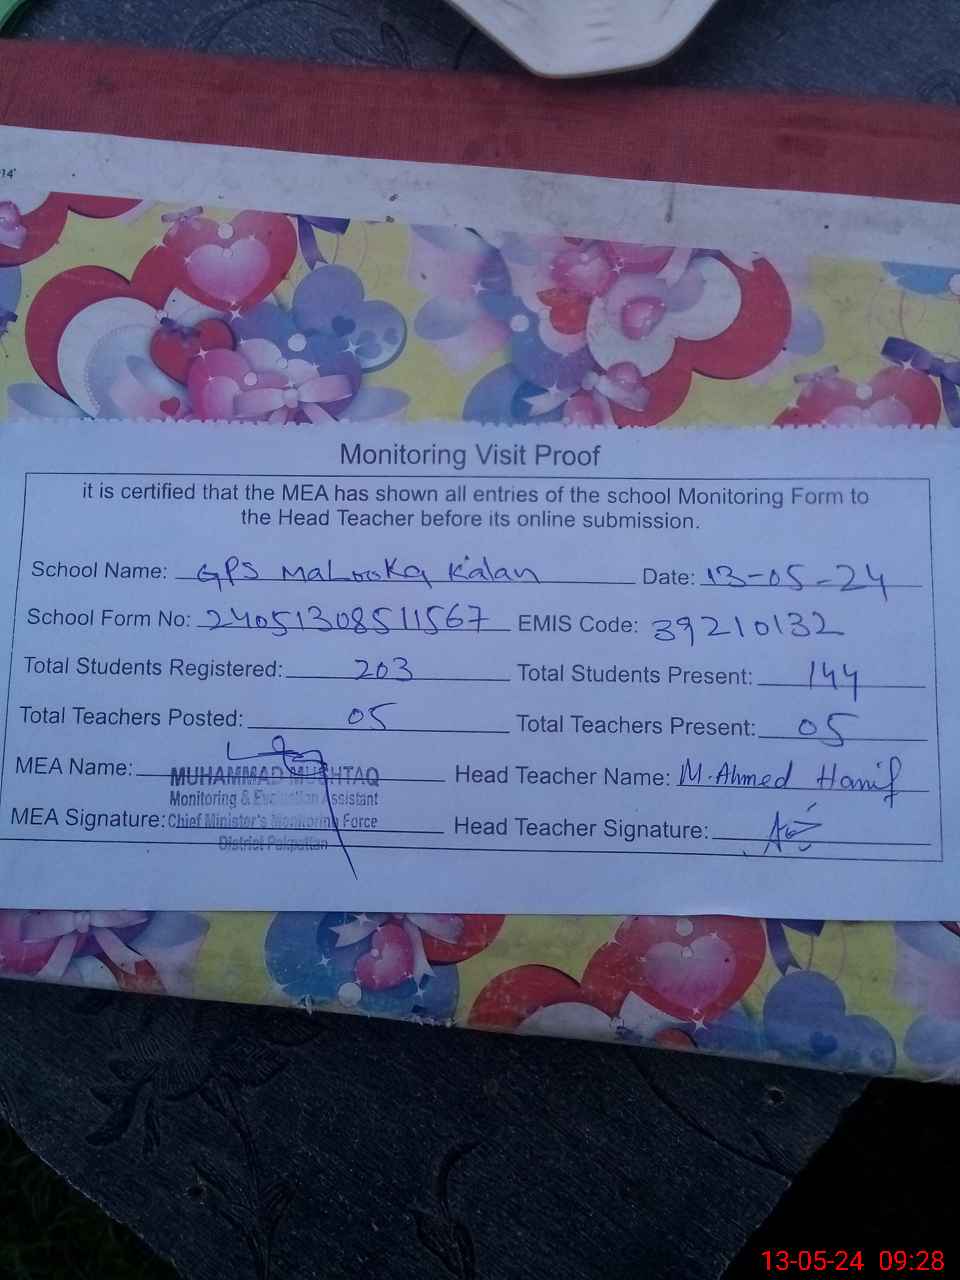 14"
Monitoring Visit Proof
it is certified that the MEA has shown all entries of the school Monitoring Form to
the Head Teacher before its online submission.
School Name: GPS Malooka Kalan Date: 13-05-24
School Form No: 24051308511567 EMIS Code: 39210132
Total Students Registered: 203 Total Students Present: 144
Total Teachers Posted: 05 Total Teachers Present: 05
MEA Name: MUHAMMAD MUSHTAQ Head Teacher Name: M. Ahmed Hanif
Monitoring & Evaluation Assistant
MEA Signature: Chief Minister's Monitoring Force Head Teacher Signature:
District Pakpattan
13-05-24 09:28